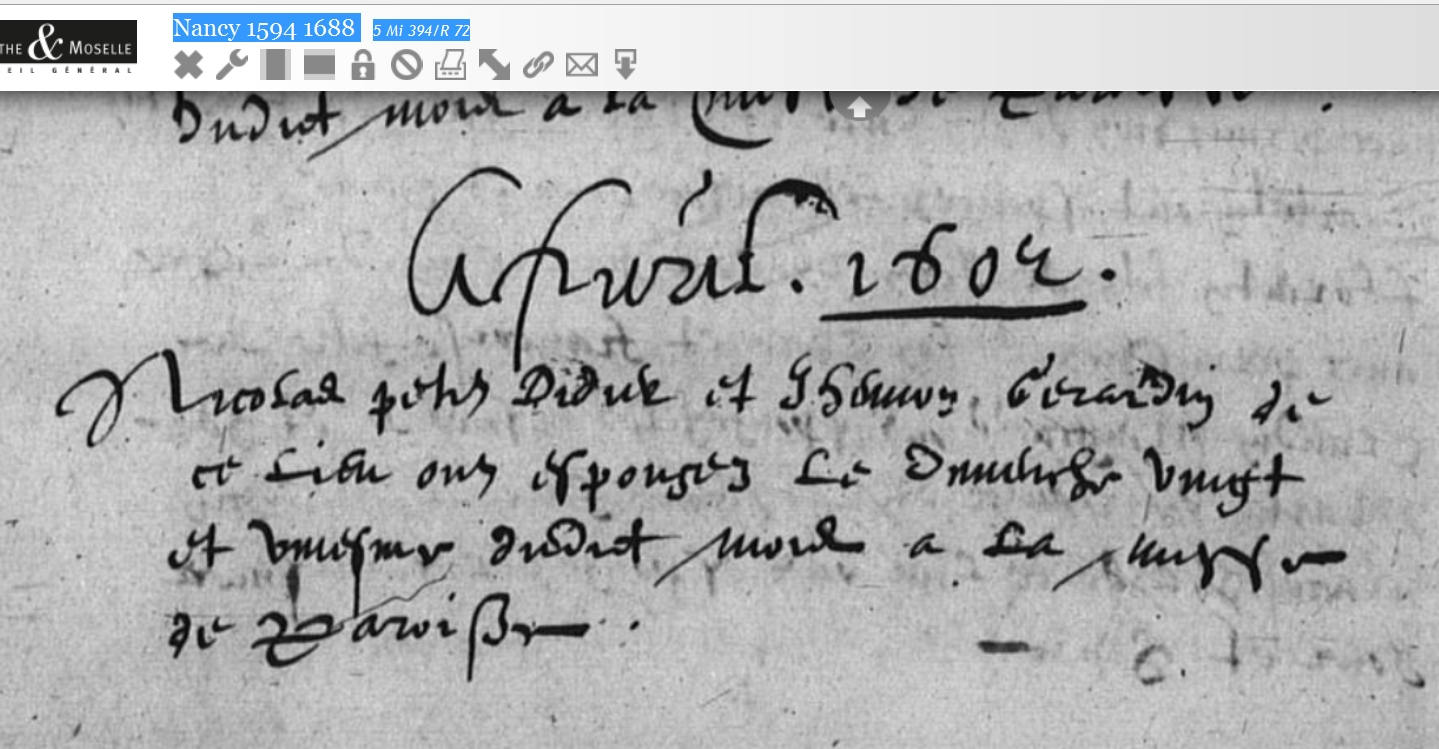 Nancy 1594 1688 5 Mi 394/R 72
THE & MOSELLE
EIL GÉNÉRAL
Dudict mois a La de
Apvril. 1602.
Nicolas petit Didier et Gérardin de
ce Lieu ont espousez Le Dimenche vingt
et uniesme dudict mois a La messe
de Paroisse.